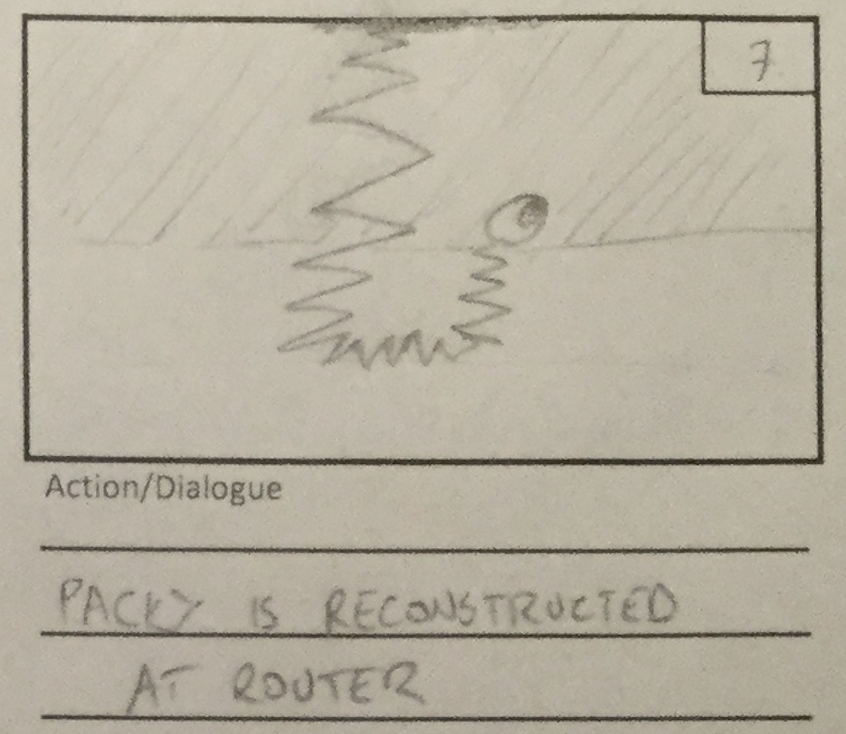 7
Action/Dialogue
PACKY IS RECONSTRUCTED
AT ROUTER